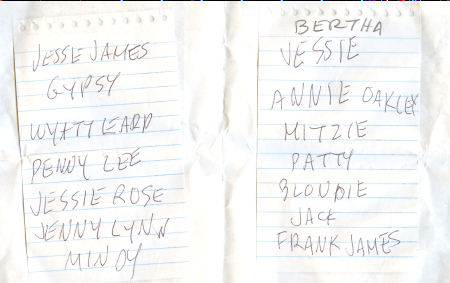 JESSE JAMES
GYPSY
WYATT LEARP
PENNY LEE
JESSIE ROSE
JENNY LYNN
MINDY
BERTHA
JESSIE
ANNIE OAKLEY
MITZIE
PATTY
BLONDIE
JACK
FRANK JAMES